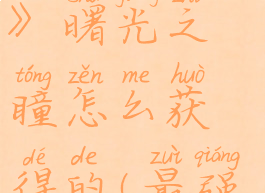 》曙光之
tóng zěn me huò
瞳怎么获
dé de zuì qiáng
得的(最强